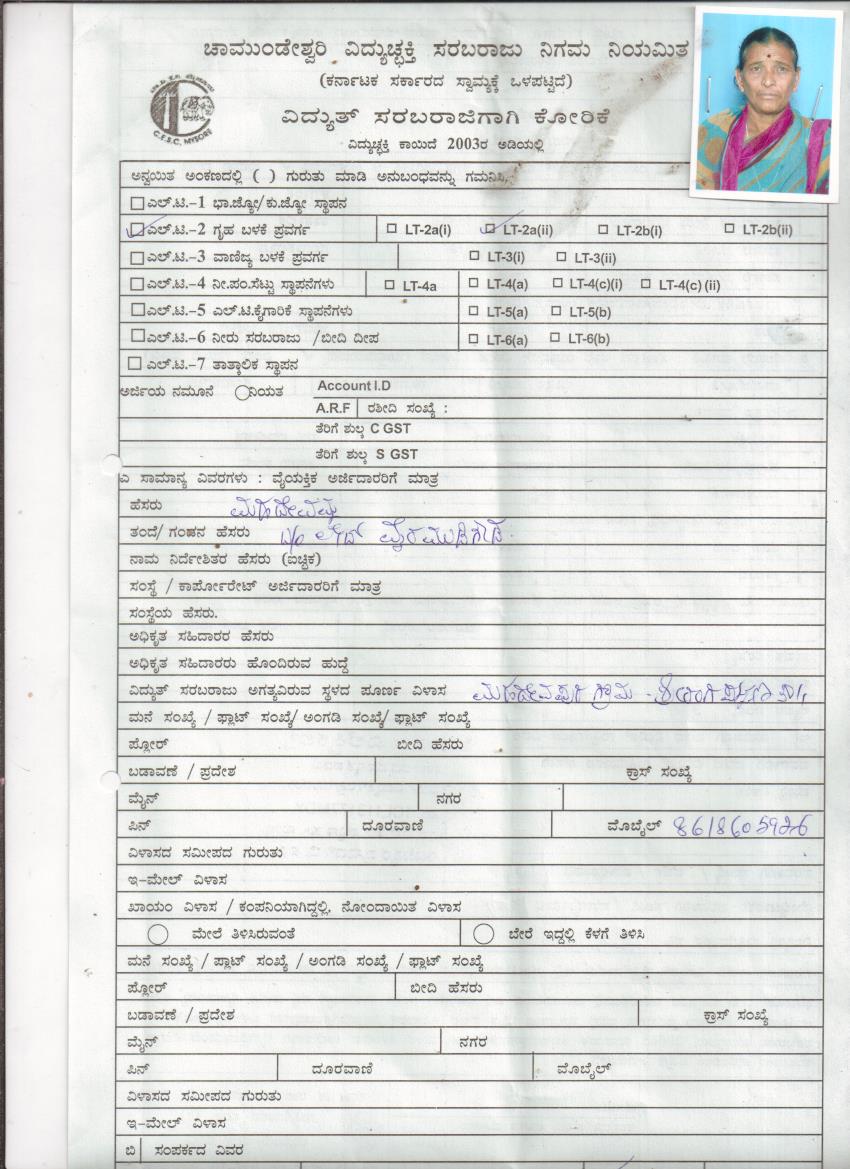 ಚಾಮುಂಡೇಶ್ವರಿ ವಿದ್ಯುಚ್ಛಕ್ತಿ ಸರಬರಾಜು ನಿಗಮ ನಿಯಮಿತ
(ಕರ್ನಾಟಕ ಸರ್ಕಾರದ ಸ್ವಾಮ್ಯಕ್ಕೆ ಒಳಪಟ್ಟಿದೆ)
C.E.S.C. MYSORE
ವಿದ್ಯುತ್ ಸರಬರಾಜಿಗಾಗಿ ಕೋರಿಕೆ
ವಿದ್ಯುಚ್ಛಕ್ತಿ ಕಾಯಿದೆ 2003ರ ಅಡಿಯಲ್ಲಿ
ಅನ್ವಯಿತ ಅಂಕಣದಲ್ಲಿ ( ) ಗುರುತು ಮಾಡಿ ಅನುಬಂಧವನ್ನು ಗಮನಿಸಿ.
ಎಲ್.ಟಿ.-1 ಭಾ.ಜ್ಯೋ/ಕು.ಜ್ಯೋ ಸ್ಥಾಪನ
ಎಲ್.ಟಿ.-2 ಗೃಹ ಬಳಕೆ ಪ್ರವರ್ಗ LT-2a(i) LT-2a(ii) LT-2b(i) LT-2b(ii)
ಎಲ್.ಟಿ.-3 ವಾಣಿಜ್ಯ ಬಳಕೆ ಪ್ರವರ್ಗ LT-3(i) LT-3(ii)
ಎಲ್.ಟಿ.-4 ನೀ.ಪಂ.ಸೆಟ್ಟು ಸ್ಥಾಪನೆಗಳು LT-4a LT-4(a) LT-4(c)(i) LT-4(c) (ii)
ಎಲ್.ಟಿ.-5 ಎಲ್.ಟಿ.ಕೈಗಾರಿಕೆ ಸ್ಥಾಪನೆಗಳು LT-5(a) LT-5(b)
ಎಲ್.ಟಿ.-6 ನೀರು ಸರಬರಾಜು /ಬೀದಿ ದೀಪ LT-6(a) LT-6(b)
ಎಲ್.ಟಿ.-7 ತಾತ್ಕಾಲಿಕ ಸ್ಥಾಪನ
ಅರ್ಜಿಯ ನಮೂನೆ ನಿಯತ Account I.D
A.R.F ರಶೀದಿ ಸಂಖ್ಯೆ :
ತೆರಿಗೆ ಶುಲ್ಕ C GST
ತೆರಿಗೆ ಶುಲ್ಕ S GST
ಎ ಸಾಮಾನ್ಯ ವಿವರಗಳು : ವೈಯಕ್ತಿಕ ಅರ್ಜಿದಾರರಿಗೆ ಮಾತ್ರ
ಹೆಸರು ಮಹದೇವಮ್ಮ
ತಂದೆ/ ಗಂಡನ ಹೆಸರು ಲೇಟ್ ವೈರಮುಡಿಗೌಡ
ನಾಮ ನಿರ್ದೇಶಿತರ ಹೆಸರು (ಐಚ್ಛಿಕ)
ಸಂಸ್ಥೆ / ಕಾರ್ಪೋರೇಟ್ ಅರ್ಜಿದಾರರಿಗೆ ಮಾತ್ರ
ಸಂಸ್ಥೆಯ ಹೆಸರು.
ಅಧಿಕೃತ ಸಹಿದಾರರ ಹೆಸರು
ಅಧಿಕೃತ ಸಹಿದಾರರು ಹೊಂದಿರುವ ಹುದ್ದೆ
ವಿದ್ಯುತ್ ಸರಬರಾಜು ಅಗತ್ಯವಿರುವ ಸ್ಥಳದ ಪೂರ್ಣ ವಿಳಾಸ ಮಹದೇವಪುರ ಗ್ರಾಮ
ಮನೆ ಸಂಖ್ಯೆ / ಫ್ಲಾಟ್ ಸಂಖ್ಯೆ/ ಅಂಗಡಿ ಸಂಖ್ಯೆ/ ಫ್ಲಾಟ್ ಸಂಖ್ಯೆ
ಪ್ಲೋರ್ ಬೀದಿ ಹೆಸರು
ಬಡಾವಣೆ / ಪ್ರದೇಶ ಕ್ರಾಸ್ ಸಂಖ್ಯೆ
ಮೈನ್ ನಗರ
ಪಿನ್ ದೂರವಾಣಿ ಮೊಬೈಲ್ 8618605926
ವಿಳಾಸದ ಸಮೀಪದ ಗುರುತು
ಇ-ಮೇಲ್ ವಿಳಾಸ
ಖಾಯಂ ವಿಳಾಸ / ಕಂಪನಿಯಾಗಿದ್ದಲ್ಲಿ, ನೋಂದಾಯಿತ ವಿಳಾಸ
ಮೇಲೆ ತಿಳಿಸಿರುವಂತೆ ಬೇರೆ ಇದ್ದಲ್ಲಿ ಕೆಳಗೆ ತಿಳಿಸಿ
ಮನೆ ಸಂಖ್ಯೆ / ಪ್ಲಾಟ್ ಸಂಖ್ಯೆ / ಅಂಗಡಿ ಸಂಖ್ಯೆ / ಫ್ಲಾಟ್ ಸಂಖ್ಯೆ
ಪ್ಲೋರ್ ಬೀದಿ ಹೆಸರು
ಬಡಾವಣೆ / ಪ್ರದೇಶ ಕ್ರಾಸ್ ಸಂಖ್ಯೆ
ಮೈನ್ ನಗರ
ಪಿನ್ ದೂರವಾಣಿ ಮೊಬೈಲ್
ವಿಳಾಸದ ಸಮೀಪದ ಗುರುತು
ಇ-ಮೇಲ್ ವಿಳಾಸ
ಬಿ ಸಂಪರ್ಕದ ವಿವರ